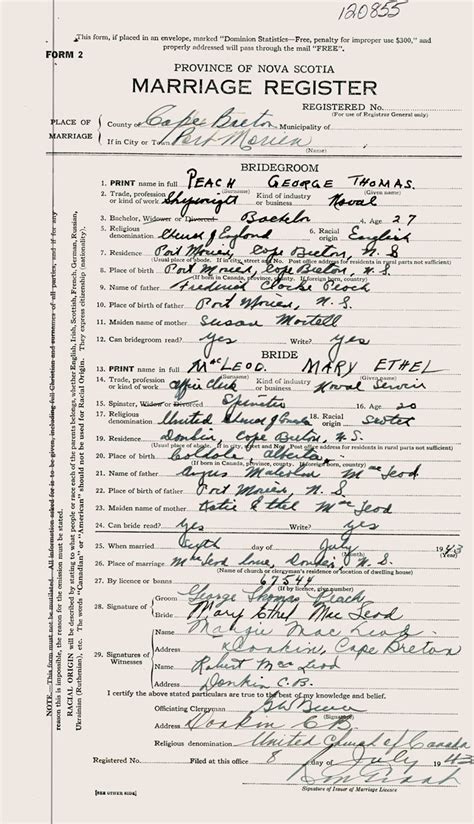 120855
This form, if placed in an envelope, marked "Dominion Statistics—Free, penalty for improper use $300," and
properly addressed will pass through the mail "FREE".
FORM 2
PROVINCE OF NOVA SCOTIA
MARRIAGE REGISTER
REGISTERED No.
(For use of Registrar General only)
PLACE OF MARRIAGE
County of Cape Breton Municipality of
If in City or Town Port Morien
(Name)
BRIDEGROOM
1. PRINT name in full PEACH GEORGE THOMAS.
(Surname) (Given name)
2. Trade, profession or kind of work Shipwright Kind of industry or business Naval
3. Bachelor, Widower or Divorced Bachelor 4. Age 27
5. Religious denomination Church of England 6. Racial origin English
7. Residence Port Morien, Cape Breton, N. S
(Usual place of abode. If in city, street and No. Post office address for residents in rural parts not sufficient)
8. Place of birth Port Morien, Cape Breton, N. S
(If born in Canada, province, county. If foreign born, country)
9. Name of father Frederick Peach
10. Place of birth of father Port Morien, N. S.
11. Maiden name of mother Susan Martell
12. Can bridegroom read? yes Write? yes
BRIDE
13. PRINT name in full MacLEOD. MARY ETHEL
(Surname) (Given name)
14. Trade, profession or kind of work Office Clerk Kind of industry or business Naval Service
15. Spinster, Widow or Divorced Spinster 16. Age 20
17. Religious denomination United Church of Canada 18. Racial origin
19. Residence Donkin, Cape Breton, N. S.
(Usual place of abode. If in city, street and No. Post office address for residents in rural parts not sufficient)
20. Place of birth Alberta
(If born in Canada, province, county. If foreign born, country)
21. Name of father Angus Malcolm MacLeod
22. Place of birth of father Port Morien, N. S
23. Maiden name of mother Katie Ethel MacLeod
24. Can bride read? yes Write? yes
25. When married Sixth day of July 1943
(Month) (Year)
26. Place of marriage Donkin, N. S.
(Name of church or clergyman's residence or location of dwelling house)
27. By licence or banns 67544
(If by licence, give number)
28. Signature of Groom George Thomas Peach
Bride Mary Ethel MacLeod
29. Signatures of Witnesses MacLeod
Address Donkin, Cape Breton
Robert MacLeod
Address Donkin C.B.
I certify the above stated particulars are true to the best of my knowledge and belief.
Officiating Clergyman
(Signature)
Address Donkin C B
Religious denomination United Church of Canada
Registered No. Filed at this office 8 day of July 1943
Signature of Issuer of Marriage Licence
[SEE OTHER SIDE]
NOTE.—This form must not be mutilated. All information asked for is to be given, including full Christian and surname of all parties, and if for any
reason this is impossible, the reason for the omission must be stated.
RACIAL ORIGIN will be described by stating to what people or race each of the parents belongs, whether English, Irish, Scottish, French, German, Russian,
Ukrainian (Ruthenian), etc. The words "Canadian" or "American" should not be used for Racial Origin. They express citizenship (nationality).